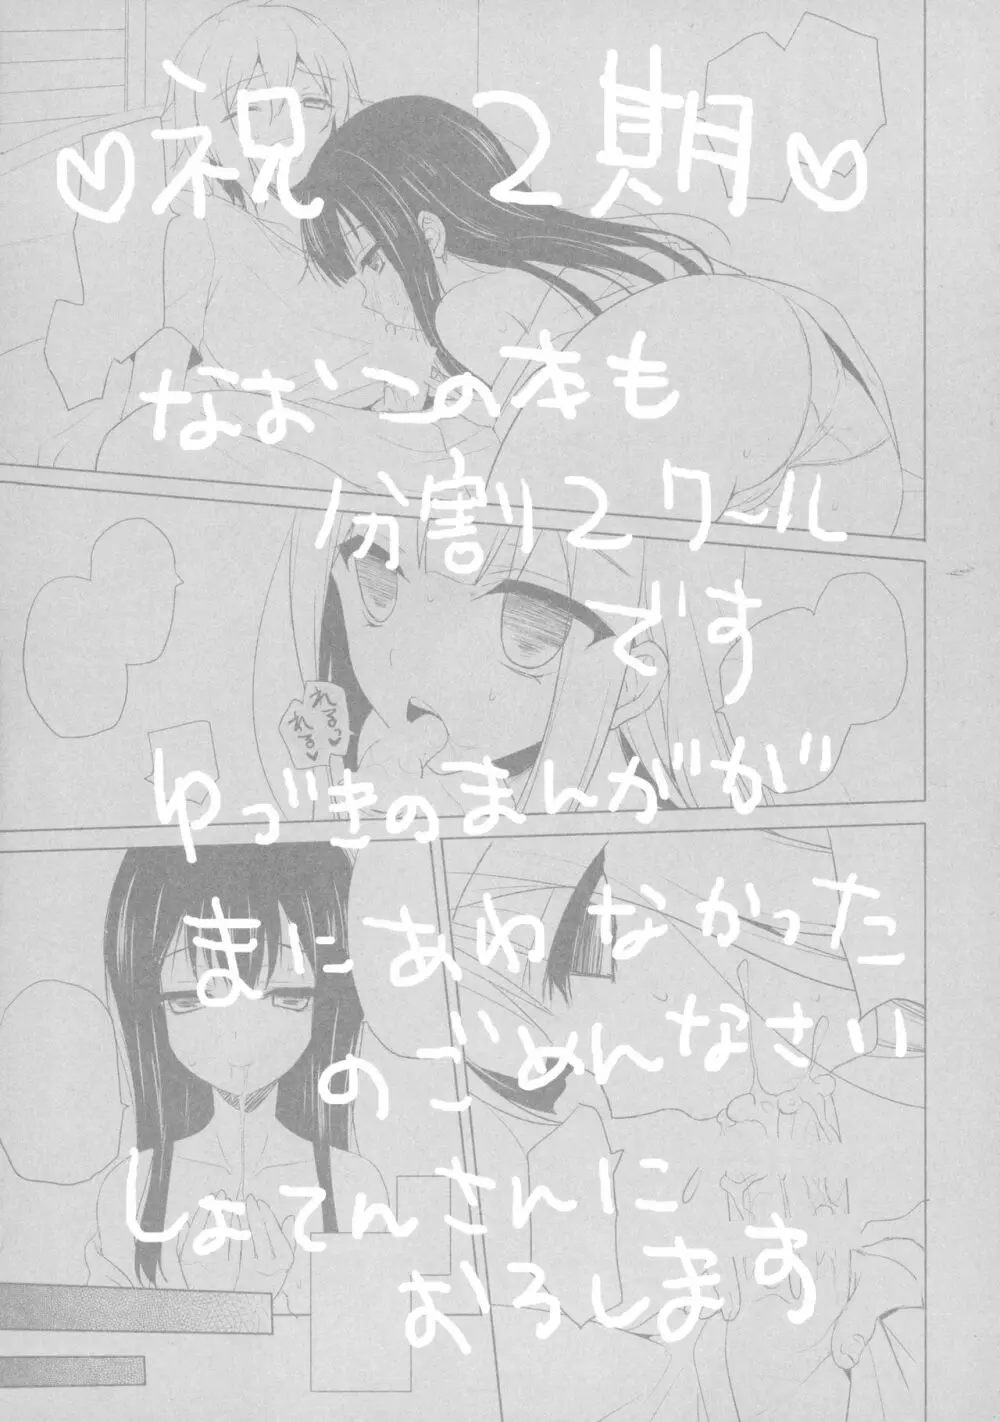 ♡祝 2期♡
なおこの本も
分割2クール
です
れるっ
れる♡
ゆづきのまんがが
まにあわなかった
のごめんなさい
しょてんさんに
おろします